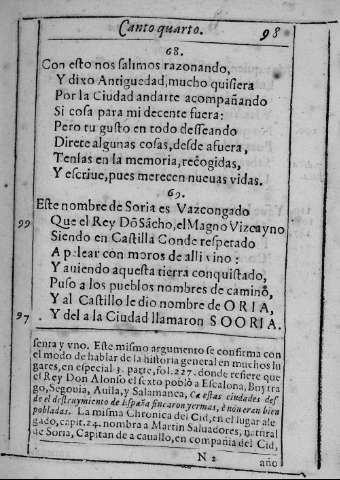 Canto quarto. 98
68.
Con esto nos salimos razonando,
Y dixo Antiguedad, mucho quisiera
Por la Ciudad andarte acompañando
Si cosa para mi decente fuera:
Pero tu gusto en todo desseando
Direte algunas cosas, desde afuera,
Tenlas en la memoria, recogidas,
Y escriue, pues merecen nueuas vidas.
69.
Este nombre de Soria es Vazcongado
99 Que el Rey Dõ Sãcho, el Magno Vizcayno
Siendo en Castilla Conde respetado
A pelear con moros de alli vino:
Y auiendo aquesta tierra conquistado,
Puso a los pueblos nombres de camino,
Y al Castillo le dio nombre de ORIA,
97 Y del a la Ciudad llamaron SOORIA.
senta y vno. Este mismo argumento se confirma con
el modo de hablar de la historia general en muchos lu
gares, en especial 3. parte, fol. 227. donde refiere que
el Rey Don Alonso el sexto poblò a Escalona, Buytra
go, Segouia, Auila, y Salamanca, Ca estas ciudades des
de el destruymiento de España fincaron yermas, è non eran bien
pobladas. La misma Chronica del Cid, en el lugar ale
gado, capit. 24. nombra a Martin Saluadores, natural
de Soria, Capitan de a cauallo, en compañia del Cid,
N 2 año